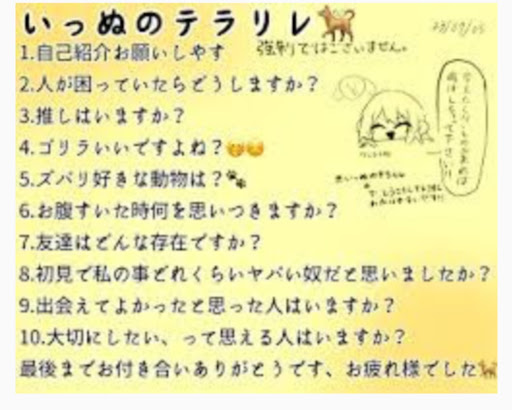 いっぬのテラリレ🐕
23/07/05
1.自己紹介お願いしやす
強制ではございません。
2.人が困っていたらどうしますか?
3.推しはいますか?
4.ゴリラいいですよね?🤭😊
5.ズバリ好きな動物は?🐾
6.お腹すいた時何を思いつきますか?
7.友達はどんな存在ですか?
8.初見で私の事どれくらいヤバい奴だと思いましたか?
9.出会えてよかったと思った人はいますか?
10.大切にしたい、って思える人はいますか?
最後までお付き合いありがとうです、お疲れ様でした🐕